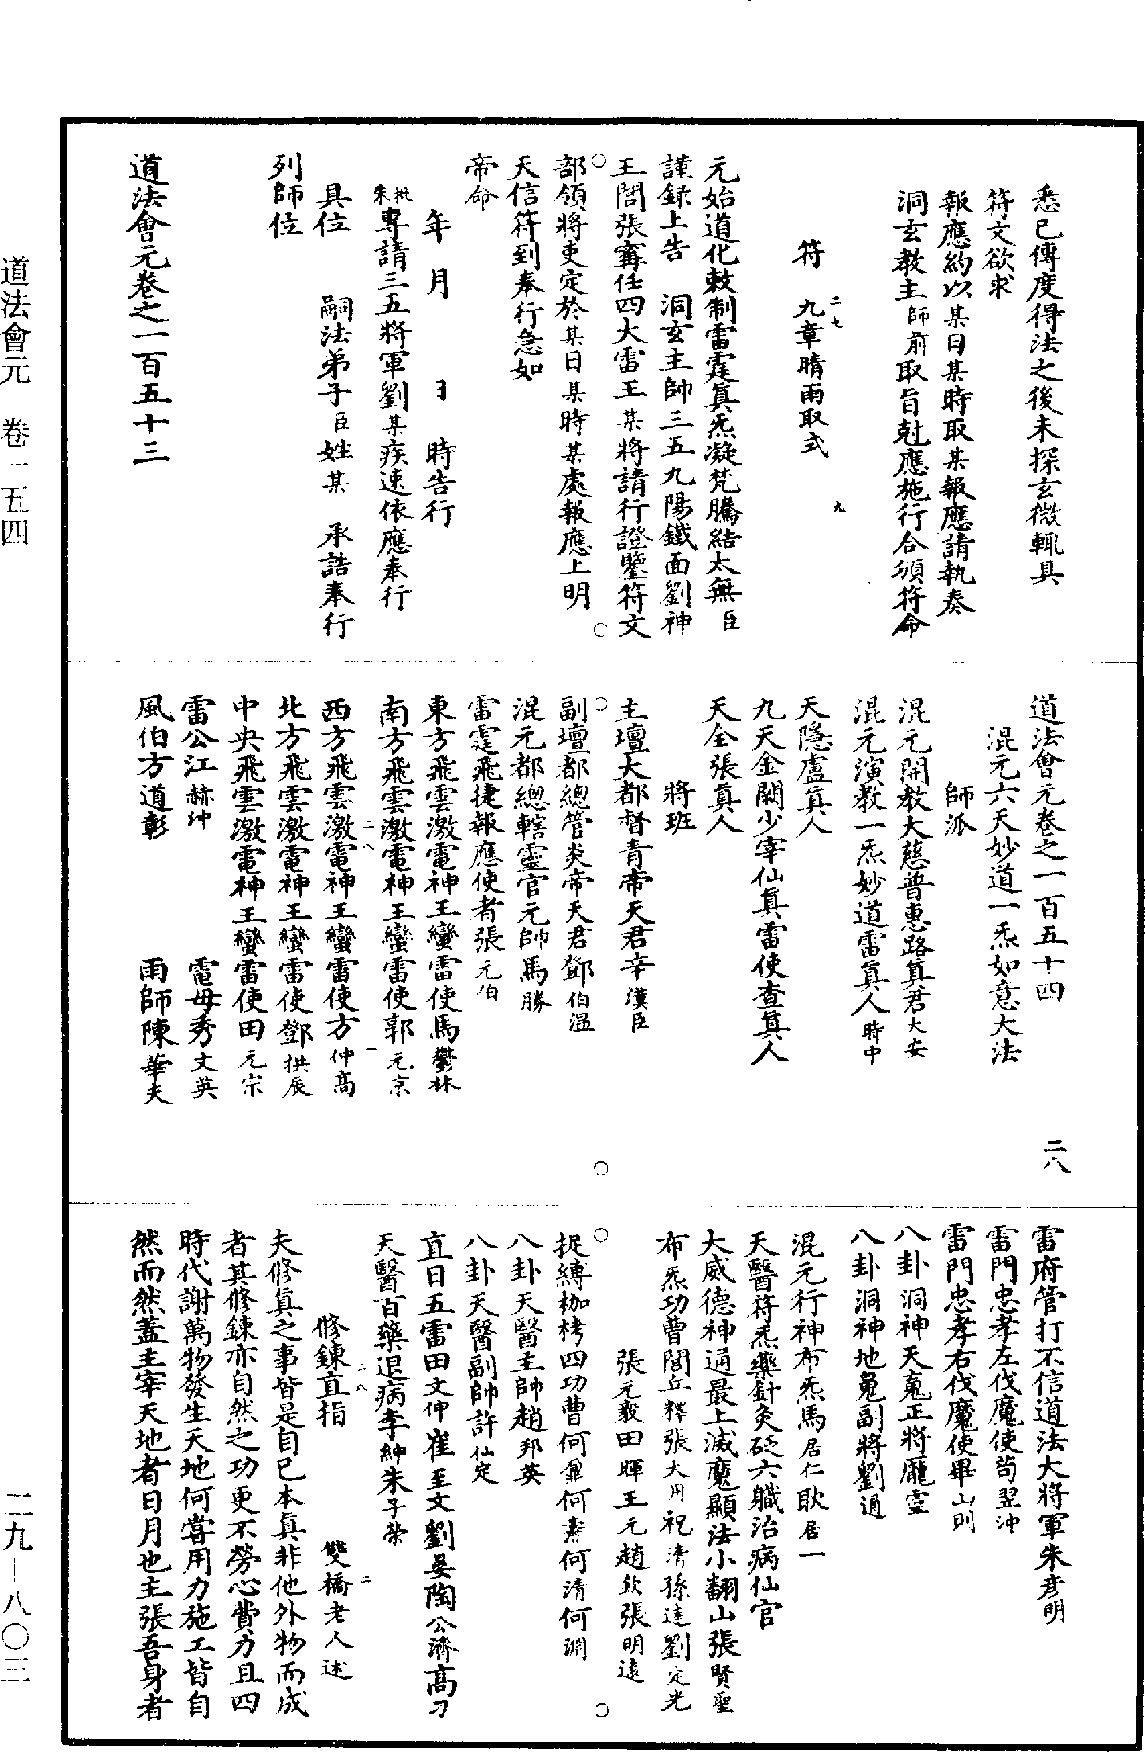 悉已傳度得法之後未探玄微輒具
符文欲求
報應約以某日某時取某報應請執奏
洞玄教主師前取旨尅應施行合頒符命
符　九章晴雨取式
二七
九
元始道化敕制雷霆眞炁凝梵騰結太無臣
謹錄上告　洞玄主帥三五九陽鐵面劉神
王閻張竇任四大雷王某將請行證鑒符文
部領將吏定於某日某時某處報應上明
天信符到奉行急如
帝命
年　月　　日　時告行
朱批專請三五將軍劉某疾速依應奉行
具位　　嗣法弟子臣姓某　承誥奉行
列師位
道法會元卷之一百五十三
道法會元卷之一百五十四　　二八
混元六天妙道一炁如意大法
師派
混元開教大慈普惠路眞君大安
混元演教一炁妙道雷眞人時中
天隱盧眞人
九天金闕少宰仙眞雷使查眞人
天全張眞人
將班
主壇大都督青帝天君辛漢臣
副壇都總管炎帝天君鄧伯溫
混元都總轄靈官元帥馬勝
雷霆飛捷報應使者張元伯
東方飛雲激電神王蠻雷使馬鬱林
南方飛雲激電神王蠻雷使郭元京
二八
一
西方飛雲激電神王蠻雷使方仲高
北方飛雲激電神王蠻雷使鄧拱辰
中央飛雲激電神王蠻雷使田元宗
雷公江赫冲　　電母秀文英
風伯方道彰　　雨師陳華夫
雷府管打不信道法大將軍朱彥明
雷門忠孝左伐魔使苟翌沖
雷門忠孝右伐魔使畢山則
八卦洞神天寃正將龐靈
八卦洞神地寃副將劉通
混元行神布炁馬居仁耿居一
天醫符炁藥針灸砭六職治病仙官
大威德神通最上滅魔顯法小翻山張賢聖
布炁功曹閻丘釋張大用祝清孫達劉定光
張元毅田暉王元趙欽張明遠
捉縛枷栲四功曹何鼐何燾何清何淵
八卦天醫主帥趙邦英
八卦天醫副帥許仙定
直日五雷田文仲崔至文劉晏陶公濟高刀
天醫百藥退病李紳朱子榮
二八
二
修鍊直指　　　雙橋老人述
夫修眞之事皆是自己本眞非他外物而成
者其修鍊亦自然之功更不勞心費力且四
時代謝萬物發生天地何嘗用力施工皆自
然而然蓋主宰天地者日月也主張吾身者
道法會元　卷一五四
二九—八〇三